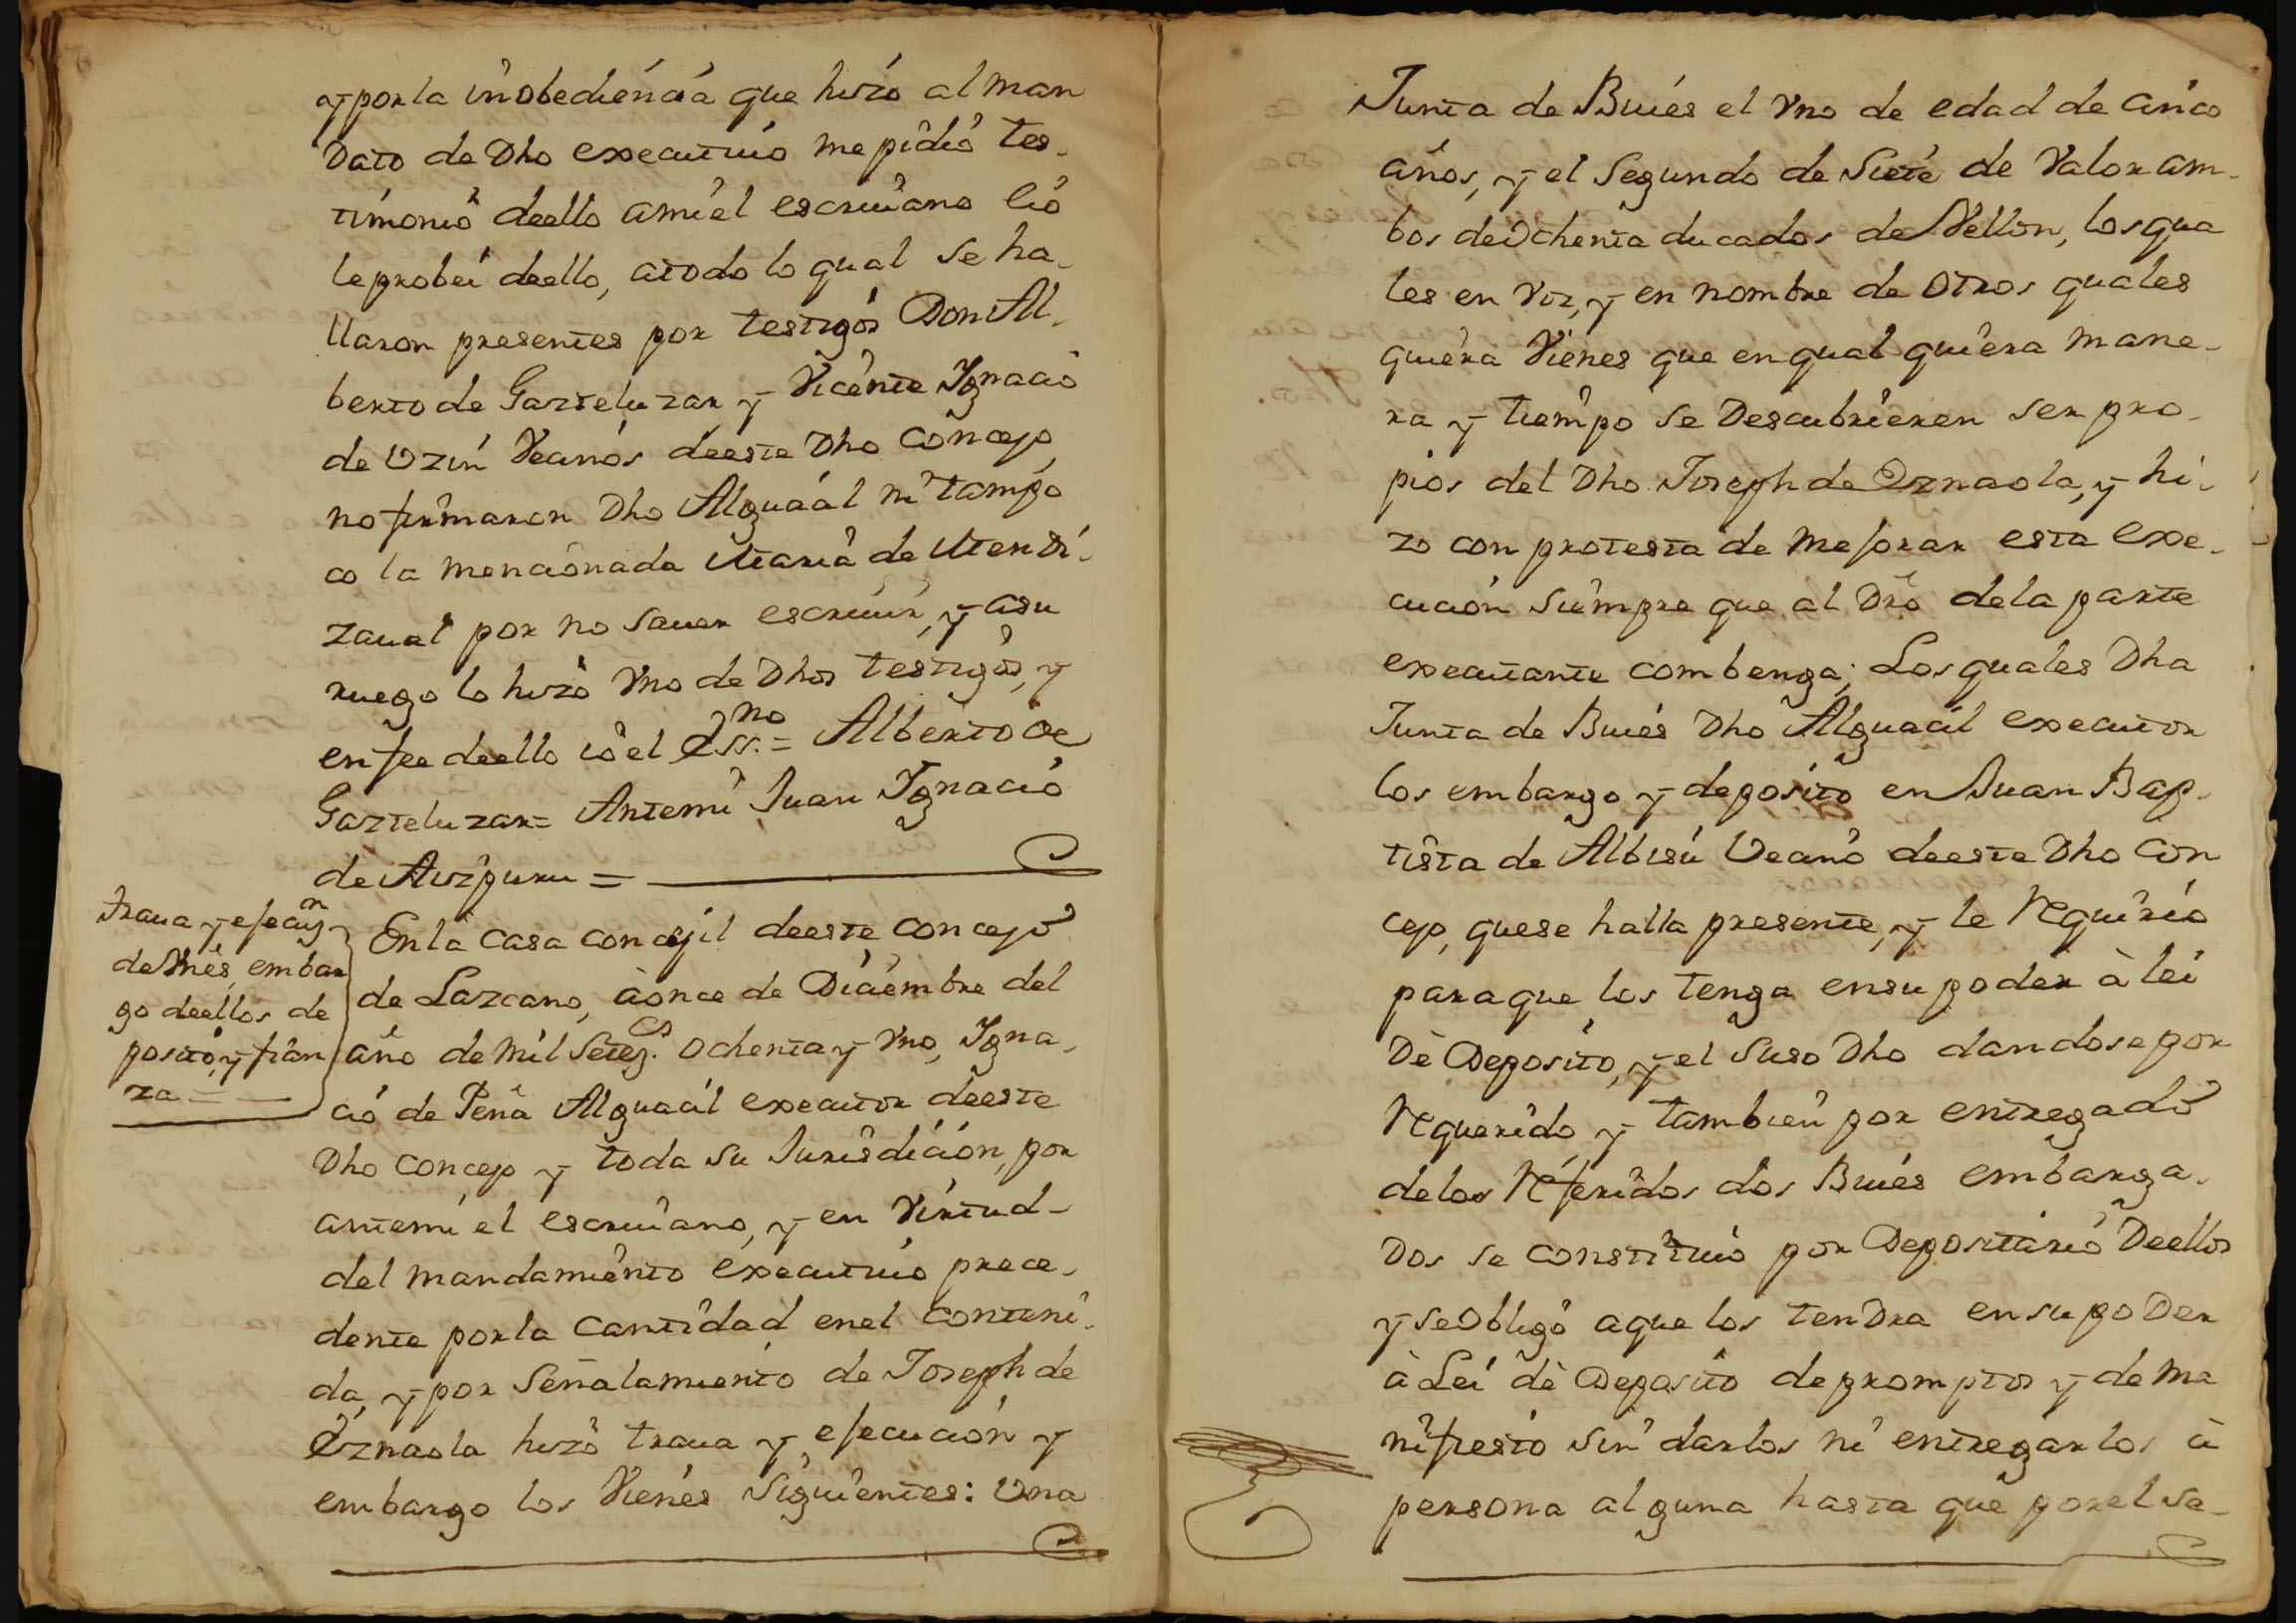 y por la inobediencia que hizo al man
dato de dho executiuo me pidió tes-
timonio deello ami el escriuano lió
le probei deello, atodo lo qual se ha-
llaron presentes por testigos Don Al-
berto de Gazteluzar y Vicente Ignacio
de Vzin Vecinos deeste dho concejo
no firmaron dho Alguacil ni tampo
co la mencionada Maria de Mendi-
zaual por no sauer escriuir, y asu
ruego lo hizo Vno de dhos testigos, y
en fee deello ió el Essno. = Alberto de
Gazteluzar = Antemi Juan Ignacio
de Aizpuru =
Traua y efecuzn
de Vnes, embar
go deellos de
posito, y fian
za =
En la casa concejil deeste concejo
de Lazcano, à once de Diciembre del
año de mil Setezs. ochenta y Vno, Igna-
cio de Peña Alguacil executor deeste
dho concejo y toda su Jurisdición, por
antemi el escriuano, y en Virtud
del mandamiento executiuo prece-
dente por la cantidad enel conteni-
da, y por Señalamiento de Joseph de
Eznaola hizo traua y efecución y
embargo los Vienes Siguientes: Una
Junta de Buies el Vno de edad de cinco
años, y el Segundo de Siete de Valor am-
bos de ochenta ducados de Vellon, los qua
les en Voz, y en nombre de otros quales
quiera Vienes que en qual quiera mane-
ra y tiempo se descubrieren ser pro-
pios del dho Joseph de Eznaola, y hi-
zo con protesta de mejorar esta exe-
cución siempre que al dro dela parte
executante combenga; Los quales dha
Junta de Buies dho Alguacil executor
los embargo y deposito en Juan Bap-
tista de Albisu Vecino deeste dho con
cejo, que se halla presente, y le requirio
para que los tenga ensu poder à lei
dè Deposito, y el suso dho dandose por
requerido, y tambien por entregado
delos referidos dos Buies embarga-
dos se constituio por Depositario deellos
y se obligó a que los tendra en su poder
à Lei dè Deposito de promptos y de ma
nifiesto sin darlos ni entregarlos à
persona alguna hasta que por el Se-